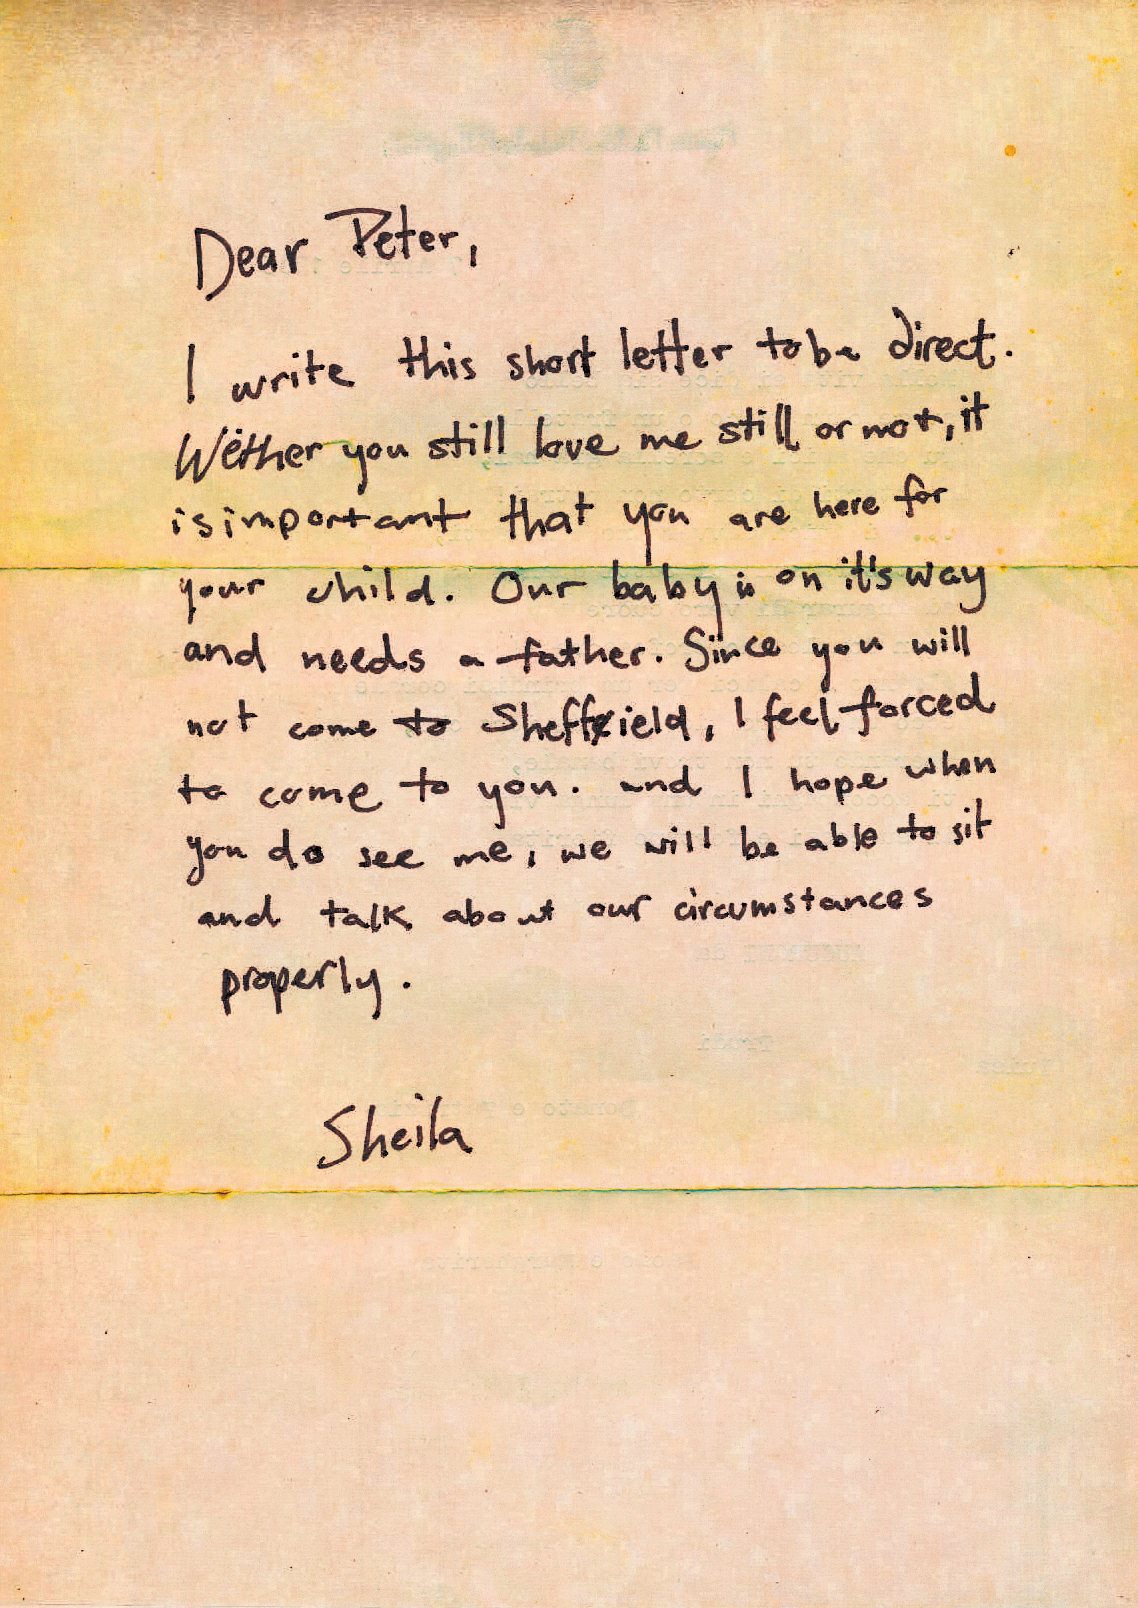 Dear Peter,
I write this short letter to be direct.
Wether you still love me still or not, it
is important that you are here for
your child. Our baby is on it's way
and needs a father. Since you will
not come to Sheffield, I feel forced
to come to you. and I hope when
you do see me, we will be able to sit
and talk about our circumstances
properly.
Sheila